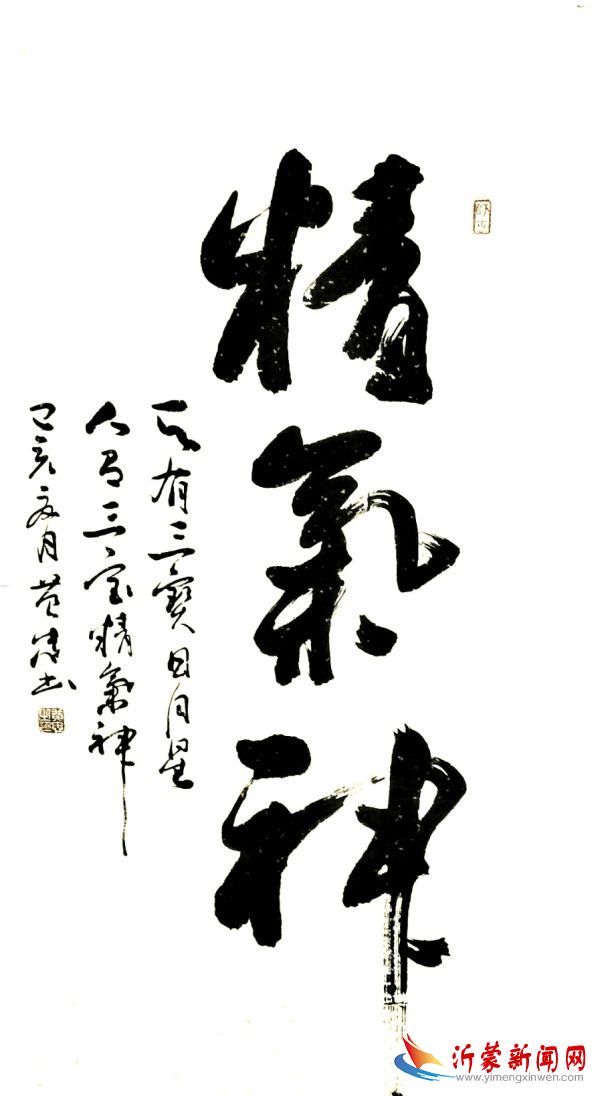 精氣神
天有三寶日月星
人有三宝精氣神
己亥夏月黄忠书
沂蒙新闻网
www.yimengxinwen.com